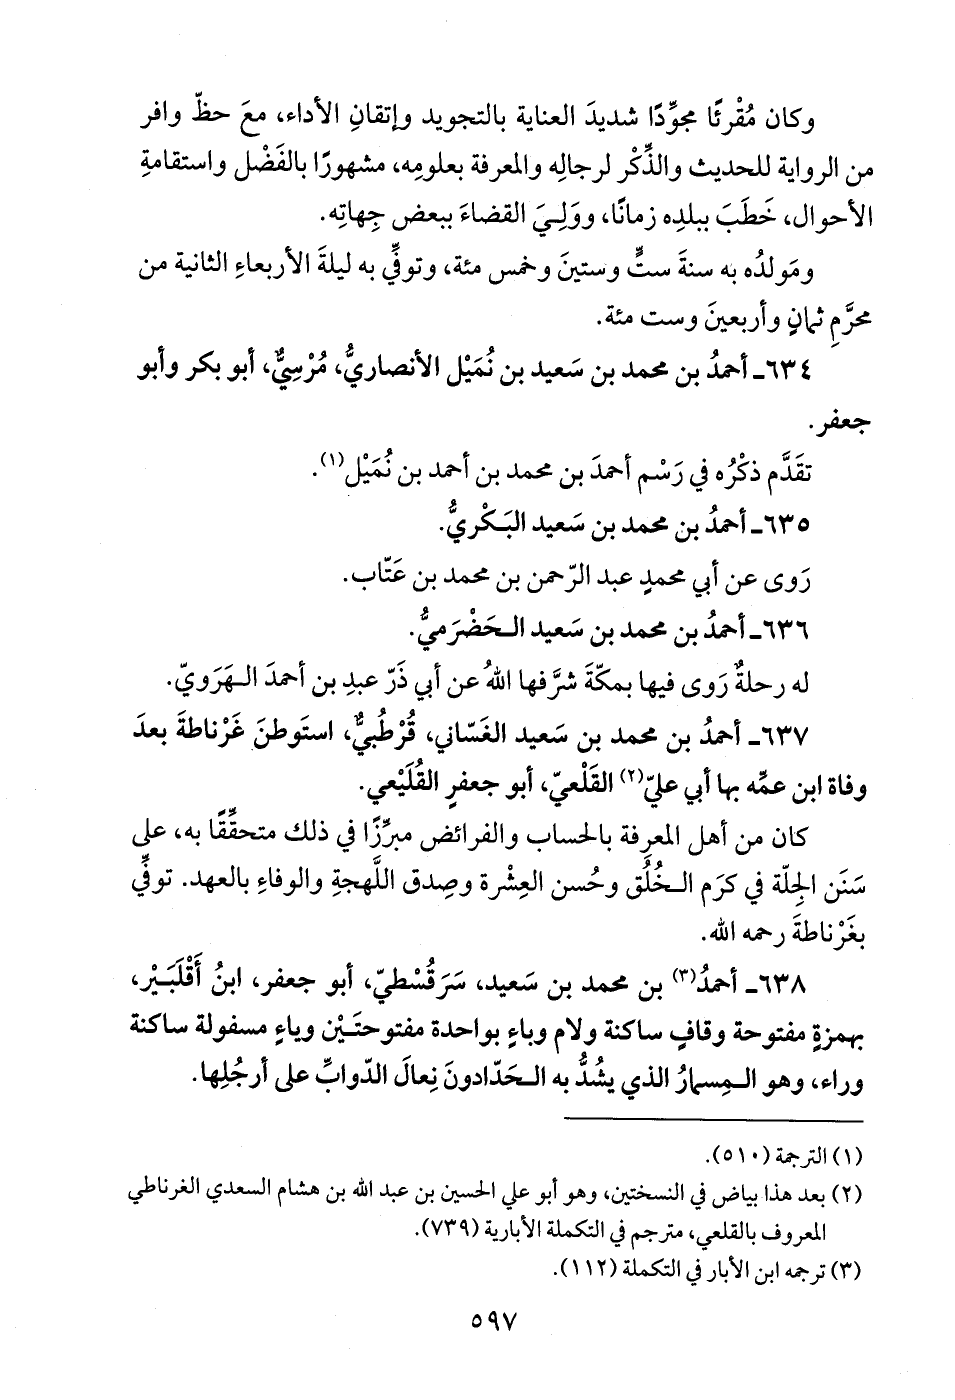 وكان مُقْرئًا مجوِّدًا شديدَ العناية بالتجويد وإتقانِ الأداء، معَ حظّ وافر
من الرواية للحديث والذِّكْر لرجالِه والمعرفة بعلومِه، مشهورًا بالفَضْل واستقامةِ
الأحوال، خَطَبَ ببلدِه زمانًا، ووَلِيَ القضاءَ ببعض جِهاتِه.
ومَولدُه به سنةَ ستٍّ وستينَ وخمس مئة، وتوفِّي به ليلةَ الأربعاءِ الثانية من
محرَّمِ ثمانٍ وأربعينَ وست مئة.
٦٣٤ـ أحمدُ بن محمد بن سَعيد بن نُمَيْل الأنصاريُّ، مُرْسِيٌّ، أبو بكر وأبو
جعفر.
تقَدَّم ذكْرُه في رَسْم أحمدَ بن محمد بن أحمد بن نُمَيْل(١).
٦٣٥ـ أحمدُ بن محمد بن سَعيد البَكْريُّ.
رَوى عن أبي محمدٍ عبد الرّحمن بن محمد بن عَتّاب.
٦٣٦ـ أحمدُ بن محمد بن سَعيد الحَضْرَميُّ.
له رحلةٌ رَوى فيها بمكّةَ شرَّفها اللهُ عن أبي ذَرّ عبدِ بن أحمدَ الهَرَويّ.
٦٣٧ـ أحمدُ بن محمد بن سَعيد الغَسّاني، قُرْطُبيٌّ، استَوطنَ غَرْناطةَ بعدَ
وفاة ابن عمِّه بها أبي عليّ(٢) القَلْعيّ، أبو جعفرٍ القُلَيْعي.
كان من أهل المعرِفة بالحساب والفرائض مبرِّزًا في ذلك متحقِّقًا به، على
سَنَن الجِلّة في كرَم الخُلُق وحُسن العِشْرة وصِدق اللَّهجةِ والوفاءِ بالعهد. توفِّي
بغَرْناطةَ رحمه الله.
٦٣٨ـ أحمدُ(٣) بن محمد بن سَعيد، سَرَقُسْطيّ، أبو جعفر، ابنُ أَقْلَبَيْر،
بهمزةٍ مفتوحة وقافٍ ساكنة ولام وباءٍ بواحدة مفتوحتَيْن وياءٍ مسفولة ساكنة
وراء، وهو المِسمارُ الذي يشُدُّ به الحَدّادونَ نِعالَ الدّوابِّ على أرجُلِها.
(١) الترجمة (٥١٠).
(٢) بعد هذا بياض في النسختين، وهو أبو علي الحسين بن عبد الله بن هشام السعدي الغرناطي
المعروف بالقلعي، مترجم في التكملة الأبارية (٧٣٩).
(٣) ترجمه ابن الأبار في التكملة (١١٢).
٥٩٧